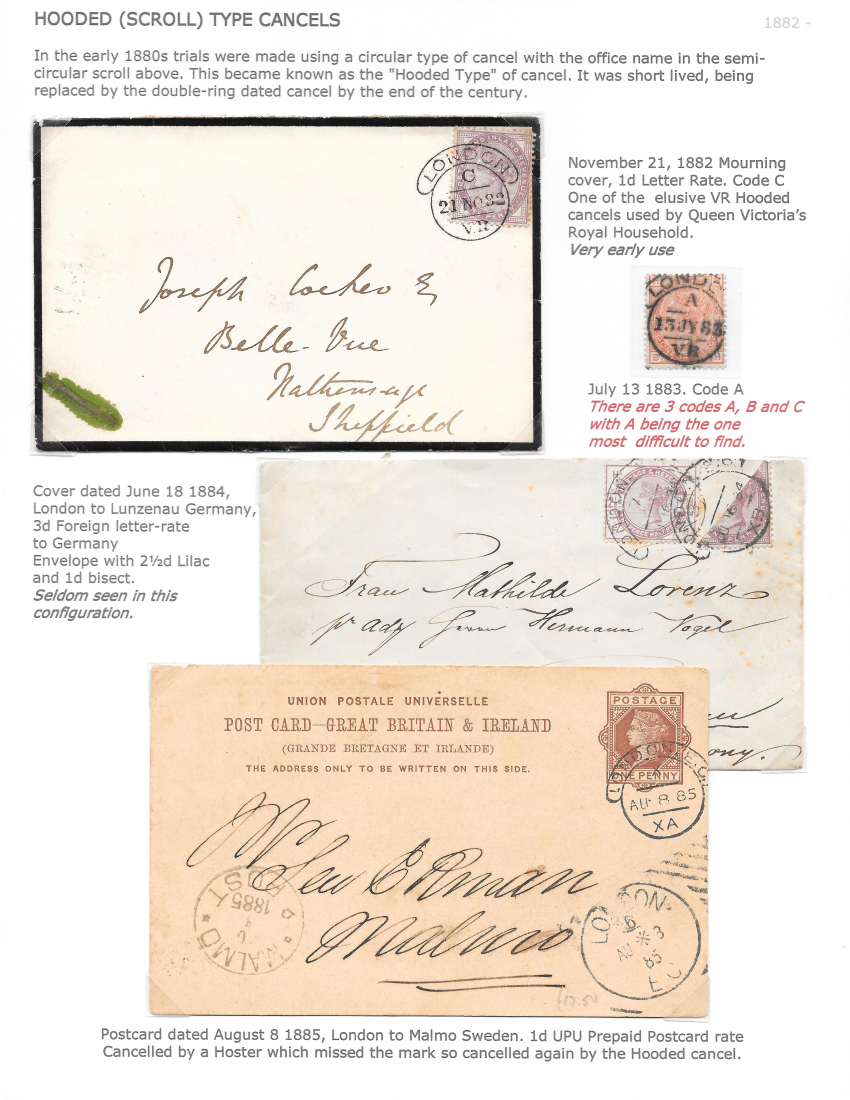 HOODED (SCROLL) TYPE CANCELS
1882 -
In the early 1880s trials were made using a circular type of cancel with the office name in the semi-
circular scroll above. This became known as the "Hooded Type" of cancel. It was short lived, being
replaced by the double-ring dated cancel by the end of the century.
LONDON
C
21 NO 82
V.R
INLAND REVENUE
Joseph
Belle-Vue
Sheffield
November 21, 1882 Mourning
cover, 1d Letter Rate. Code C
One of the elusive VR Hooded
cancels used by Queen Victoria's
Royal Household.
Very early use
LONDO
A
13 JY 83
VR
July 13 1883. Code A
There are 3 codes A, B and C
with A being the one
most difficult to find.
Cover dated June 18 1884,
London to Lunzenau Germany,
3d Foreign letter-rate
to Germany
Envelope with 2½d Lilac
and 1d bisect.
Seldom seen in this
configuration.
LONDON
LONDON
Frau Mathilde Lorenz
pr adr Herrn Hermann Vogel
UNION POSTALE UNIVERSELLE
POST CARD—GREAT BRITAIN & IRELAND
(GRANDE BRETAGNE ET IRLANDE)
THE ADDRESS ONLY TO BE WRITTEN ON THIS SIDE.
POSTAGE
ONE PENNY
LONDON. E.C.
AU 8 85
XA
Malmö
MALMÖ
1885
POST
LONDON
AU 8
85
E C
£17.50
Postcard dated August 8 1885, London to Malmo Sweden. 1d UPU Prepaid Postcard rate
Cancelled by a Hoster which missed the mark so cancelled again by the Hooded cancel.